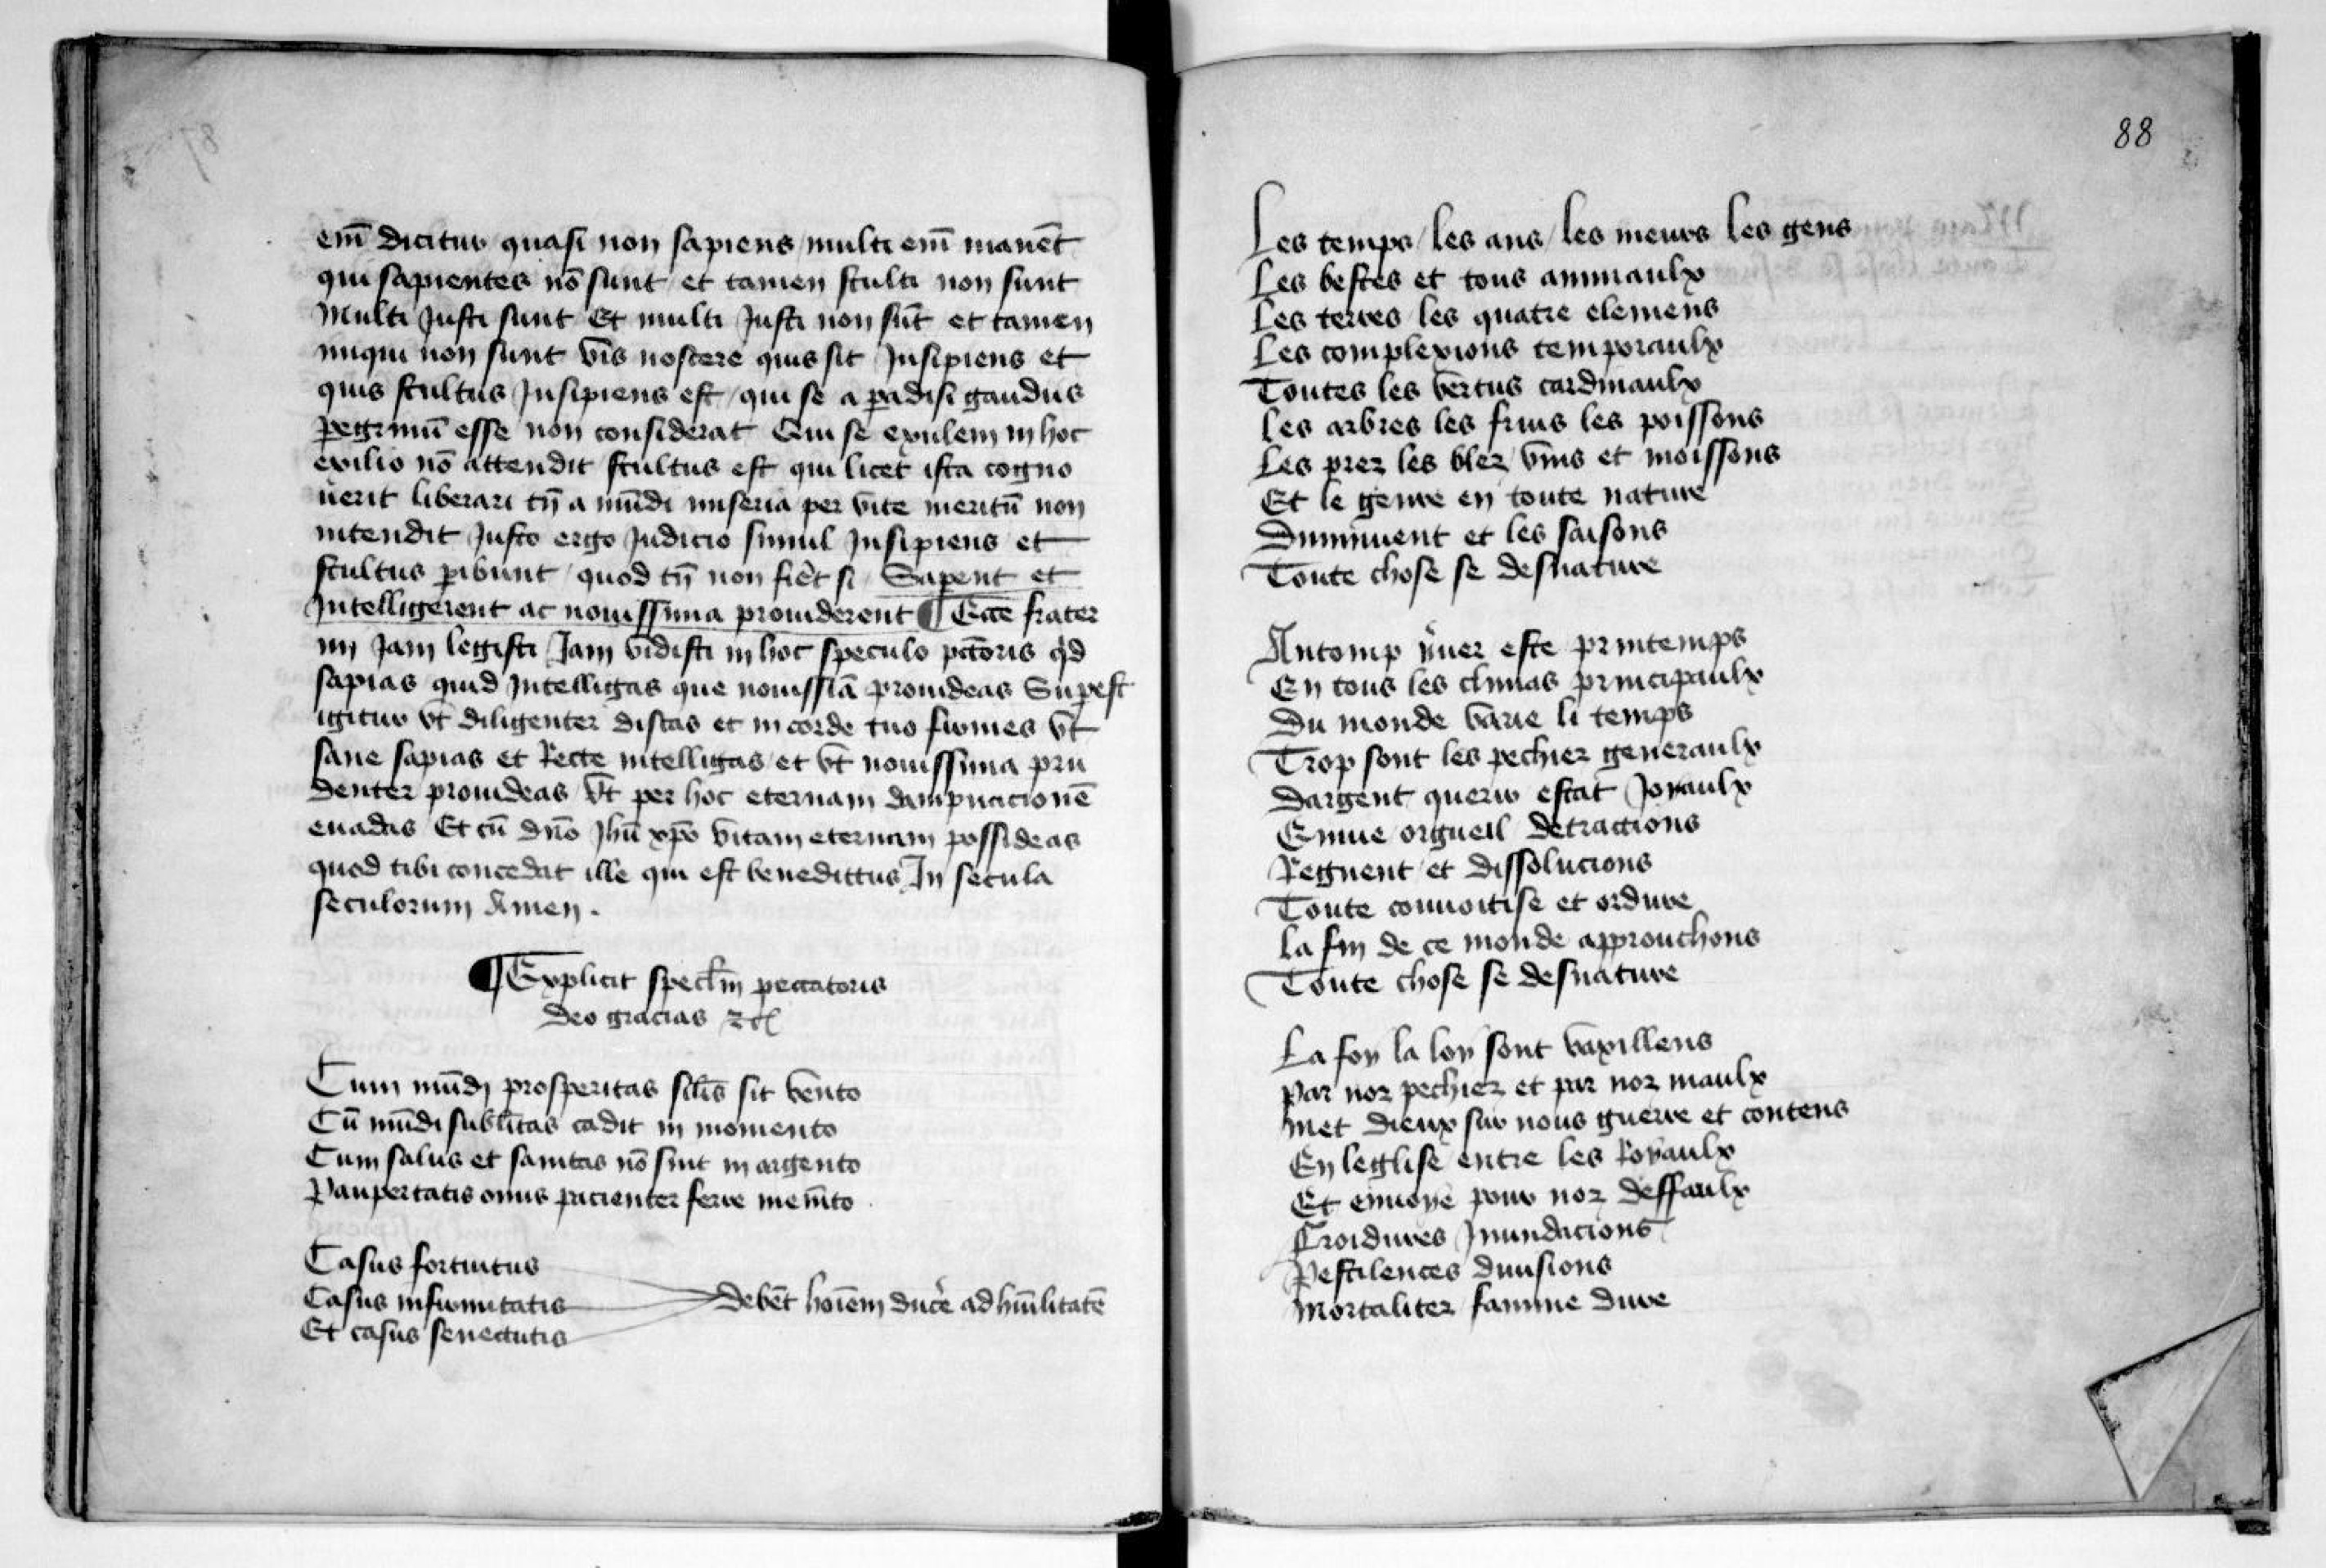 em̄ dicitur quasi non sapiens / multi em̄ manēt
qui sapientes nō sunt / et tamen stulti non sunt
Multi Justi sunt / Et multi Justi non sūt et tamen
iniqui non sunt vis noscere quis sit Insipiens et
quis stultus Insipiens est / qui se a padisi gaudiis
pegrinū esse non considerat Qui se exulem in hoc
exilio nō attendit stultus est qui licet ista cogno
uerit liberari tn̄ a mūdi miseria per vite meritū non
intendit Justo ergo Judicio simul Insipiens et
stultus pibunt / quod tn̄ non fiet si / Saperent et
Intelligerent ac nouissima prouiderent ¶ Ecce frater
mi Jam legisti Jam vidisti in hoc speculo pctōris qd
sapias quid Intelligas que nouissiā prouideas Supest
igitur vt diligenter discas et in corde tuo firmes vt
sane sapias et Recte intelligas / et vt nouissima pru
denter prouideas vt per hoc eternam dampnacionē
euadas Et cū dn̄o Jhū xp̄o vitam eternam possideas
quod tibi concedat ille qui est benedictus In secula
seculorum Amen .
¶ Explicit specl̄m peccatoris
deo gracias etc
Cum mūdj prosperitas sil̄is sit vento
Cū mūdi subl̄itas cadit in momento
Cum salus et sanitas nō sint in argento
Paupertatis onus pacienter ferre mem̄to .
Casus fortuitus
Casus infirmitatis
Et casus senectutis
debēt hoīem ducē ad hūilitatē
88
Les temps / les ans / les meurs les gens
Les bestes et tous animaulx
Les terres / les quatre elemens
Les complexions temporaulx
Toutes les vertus cardinaulx
Les arbres les fruis les poissons
Les prez les blez / vins et moissons
Et le genre en toute nature
Diminuent et les saisons
Toute chose se desnature
Antomp yuer este printemps
En tous les climas principaulx
Du monde varie li temps
Trop sont les pechiez generaulx
Dargent querir estat Joyaulx
Enuie / orgueil detractions
Regnent / et dissolucions
Toute conuoitise et ordure
La fin de ce monde approuchons
Toute chose se desnature
La foy la loy sont vaxillens
Par noz pechiez et par noz maulx
Met dieux sur nous guerre et contens
En leglise entre les Royaulx
Et enuoye pour noz deffaulx
Froidures Inundacions
Pestilences diuisions
Mortalitez famine dure